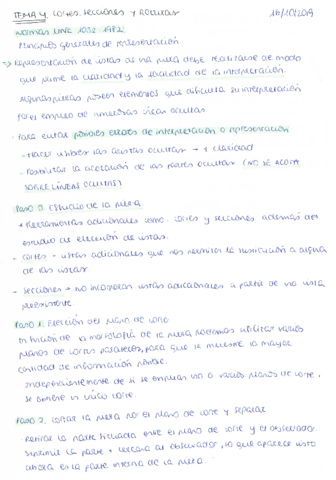 TEMA 4. CORTES, SECCIONES Y ROTURAS 16/10/2019
NORMAS UNE 1032-1982
Principios generales de representación
→ Representación de vistas de una pieza debe realizarse de modo
que prime la claridad y la facilidad de la interpretación.
Algunas piezas poseen elementos que dificulta su interpretación
por el empleo de numerosas líneas ocultas
- Para evitar posibles errores de interpretación o representación
- Hacer visibles las aristas ocultas → + claridad
- Posibilitar la acotación de las partes ocultas (NO SE ACOTA
SOBRE LÍNEAS OCULTAS)
PASO 0. Estudio de la pieza
+ Herramientas adicionales como: cortes y secciones además del
estudio de elección de vistas.
- cortes → vistas adicionales que nos permiten la sustitución a alguna
de las vistas
- secciones → no incorporan vistas adicionales a partir de una vista
preexistente
PASO 1. Elección del plano de corte
En función de la morfología de la pieza podremos utilizar varios
planos de cortes paralelos, para que se muestre la mayor
cantidad de información posible.
Independientemente de si se emplean uno o varios planos de corte,
se obtiene un único corte.
PASO 2. Cortar la pieza por el plano de corte y separar
- Retirar la parte situada entre el plano de corte y el observador.
Suprimir la parte + cercana al observador, lo que aparece visto
ahora es la parte interna de la pieza.